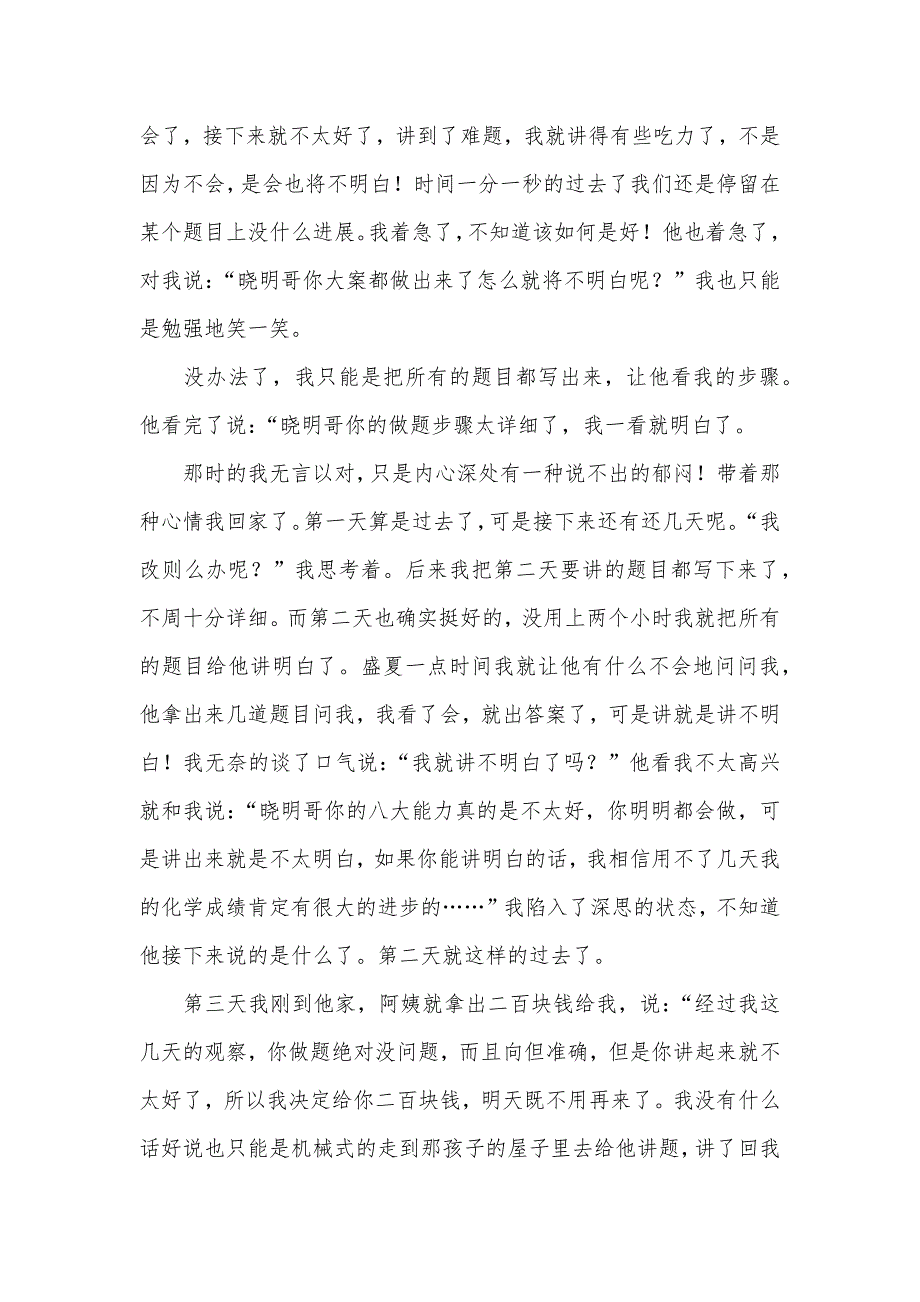 会了，接下来就不太好了，讲到了难题，我就讲得有些吃力了，不是
因为不会，是会也将不明白！时间一分一秒的过去了我们还是停留在
某个题目上没什么进展。我着急了，不知道该如何是好！他也着急了，
对我说：“晓明哥你大案都做出来了怎么就将不明白呢？”我也只能
是勉强地笑一笑。
没办法了，我只能是把所有的题目都写出来，让他看我的步骤。
他看完了说：“晓明哥你的做题步骤太详细了，我一看就明白了。
那时的我无言以对，只是内心深处有一种说不出的郁闷！带着那
种心情我回家了。第一天算是过去了，可是接下来还有还几天呢。“我
改则么办呢？”我思考着。后来我把第二天要讲的题目都写下来了，
不周十分详细。而第二天也确实挺好的，没用上两个小时我就把所有
的题目给他讲明白了。盛夏一点时间我就让他有什么不会地问问我，
他拿出来几道题目问我，我看了会，就出答案了，可是讲就是讲不明
白！我无奈的谈了口气说：“我就讲不明白了吗？”他看我不太高兴
就和我说：“晓明哥你的八大能力真的是不太好，你明明都会做，可
是讲出来就是不太明白，如果你能讲明白的话，我相信用不了几天我
的化学成绩肯定有很大的进步的……”我陷入了深思的状态，不知道
他接下来说的是什么了。第二天就这样的过去了。
第三天我刚到他家，阿姨就拿出二百块钱给我，说：“经过我这
几天的观察，你做题绝对没问题，而且向但准确，但是你讲起来就不
太好了，所以我决定给你二百块钱，明天既不用再来了。我没有什么
话好说也只能是机械式的走到那孩子的屋子里去给他讲题，讲了回我